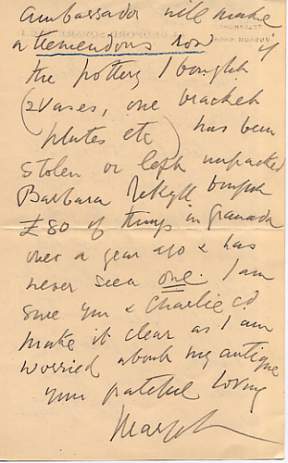 Ambassador will make
a tremendous row if
the pottery I bought
(2 vases, one bracket
plates etc) has been
stolen or left unpacked
Barbara Jekyll bought
£80 of things in Granada
over a year ago & has
never seen one. I am
sure you & Charlie cd.
make it clear as I am
worried about my antique
your grateful loving